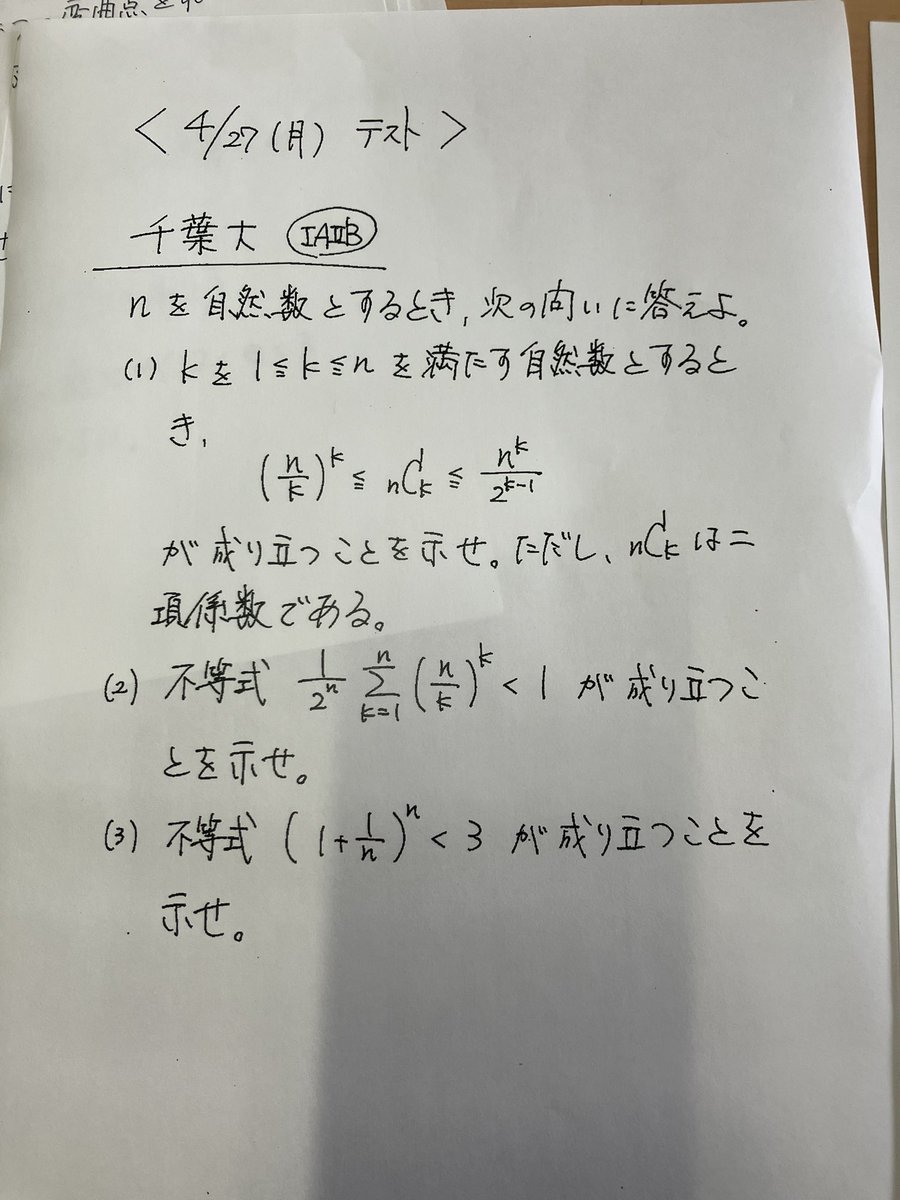 変曲点を
< 4/27(月) テスト >
千葉大 ⅠAⅡB
nを自然数とするとき,次の問いに答えよ。
(1) kを1≦k≦nを満たす自然数とすると
き,
(n/k)^k ≦ nCk ≦ n^k/2^(k-1)
が成り立つことを示せ。ただし、nCkは二
項係数である。
(2) 不等式 1/2^n Σ_{k=1}^{n} (n/k)^k < 1 が成り立つこ
とを示せ。
(3) 不等式 (1+1/n)^n < 3 が成り立つことを
示せ。